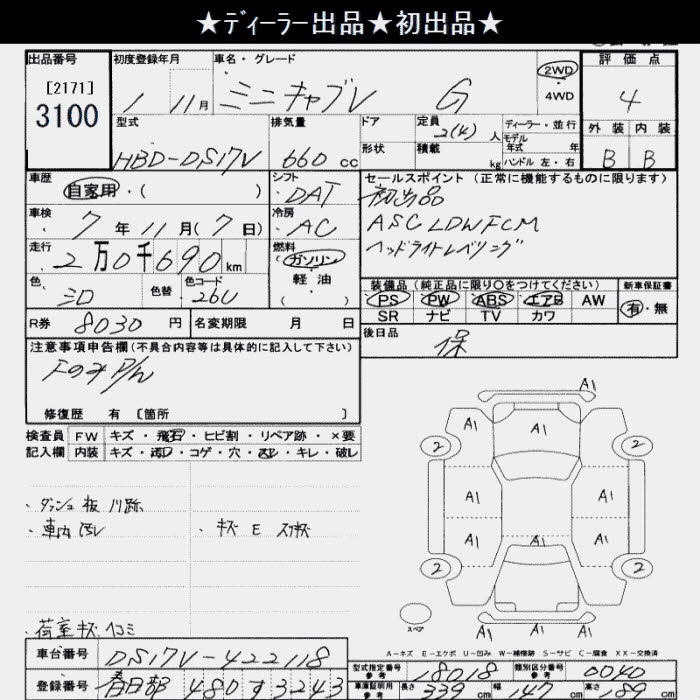 ★ディーラー出品★初出品★
出品番号 初度登録年月 車名・グレード 評価点
[2171]
3100
1 11月 ミニキャブV G 2WD 4
4WD
型式 排気量 ドア 定員 2(4)人 ディーラー・並行 外装 内装
形状 積載 kg モデル年式 年
HBD-DS17V 660cc ハンドル 左・右 B B
車歴 シフト セールスポイント (正常に機能するものに限ります)
自家用・( ) DAT 初出品
車検 冷房 ASC LDW FCM
7年11月(7日) AC ヘッドライトレベリング
走行 燃料
2万0千690km ガソリン
軽油 装備品(純正品に限り○をつけてください) 新車保証書
色 色替 色コード ( ・ ) PS PW ABS エアB AW 有・無
シロ 26U SR ナビ TV カワ
R券 8030円 名変期限 月 日 後日品
保
注意事項申告欄(不具合内容等は具体的に記入して下さい)
Fのみ P/W
修復歴 有 [箇所 ]
検査員 FW キズ・飛石・ヒビ割・リペア跡・×要
記入欄 内装 キズ・コゲ・穴・キレ・破レ
A1
A1 A1 A1
2 2
A1 A1
A1 A1 A1
2 2
・ダッシュ板 跡
・車内汚レ ・キズ E スリキズ
・荷室キズ凹ミ
スペア
A-キズ E-エクボ U-凹み W-補修跡 S-サビ C-腐食 XX-交換済
車台番号 DS17V-422118
型式指定番号 参考 18018 類別区分番号 参考 0040
登録番号 春日部 480す3243
車庫証明用 参考 長さ 339cm 幅 147cm 高さ 189cm